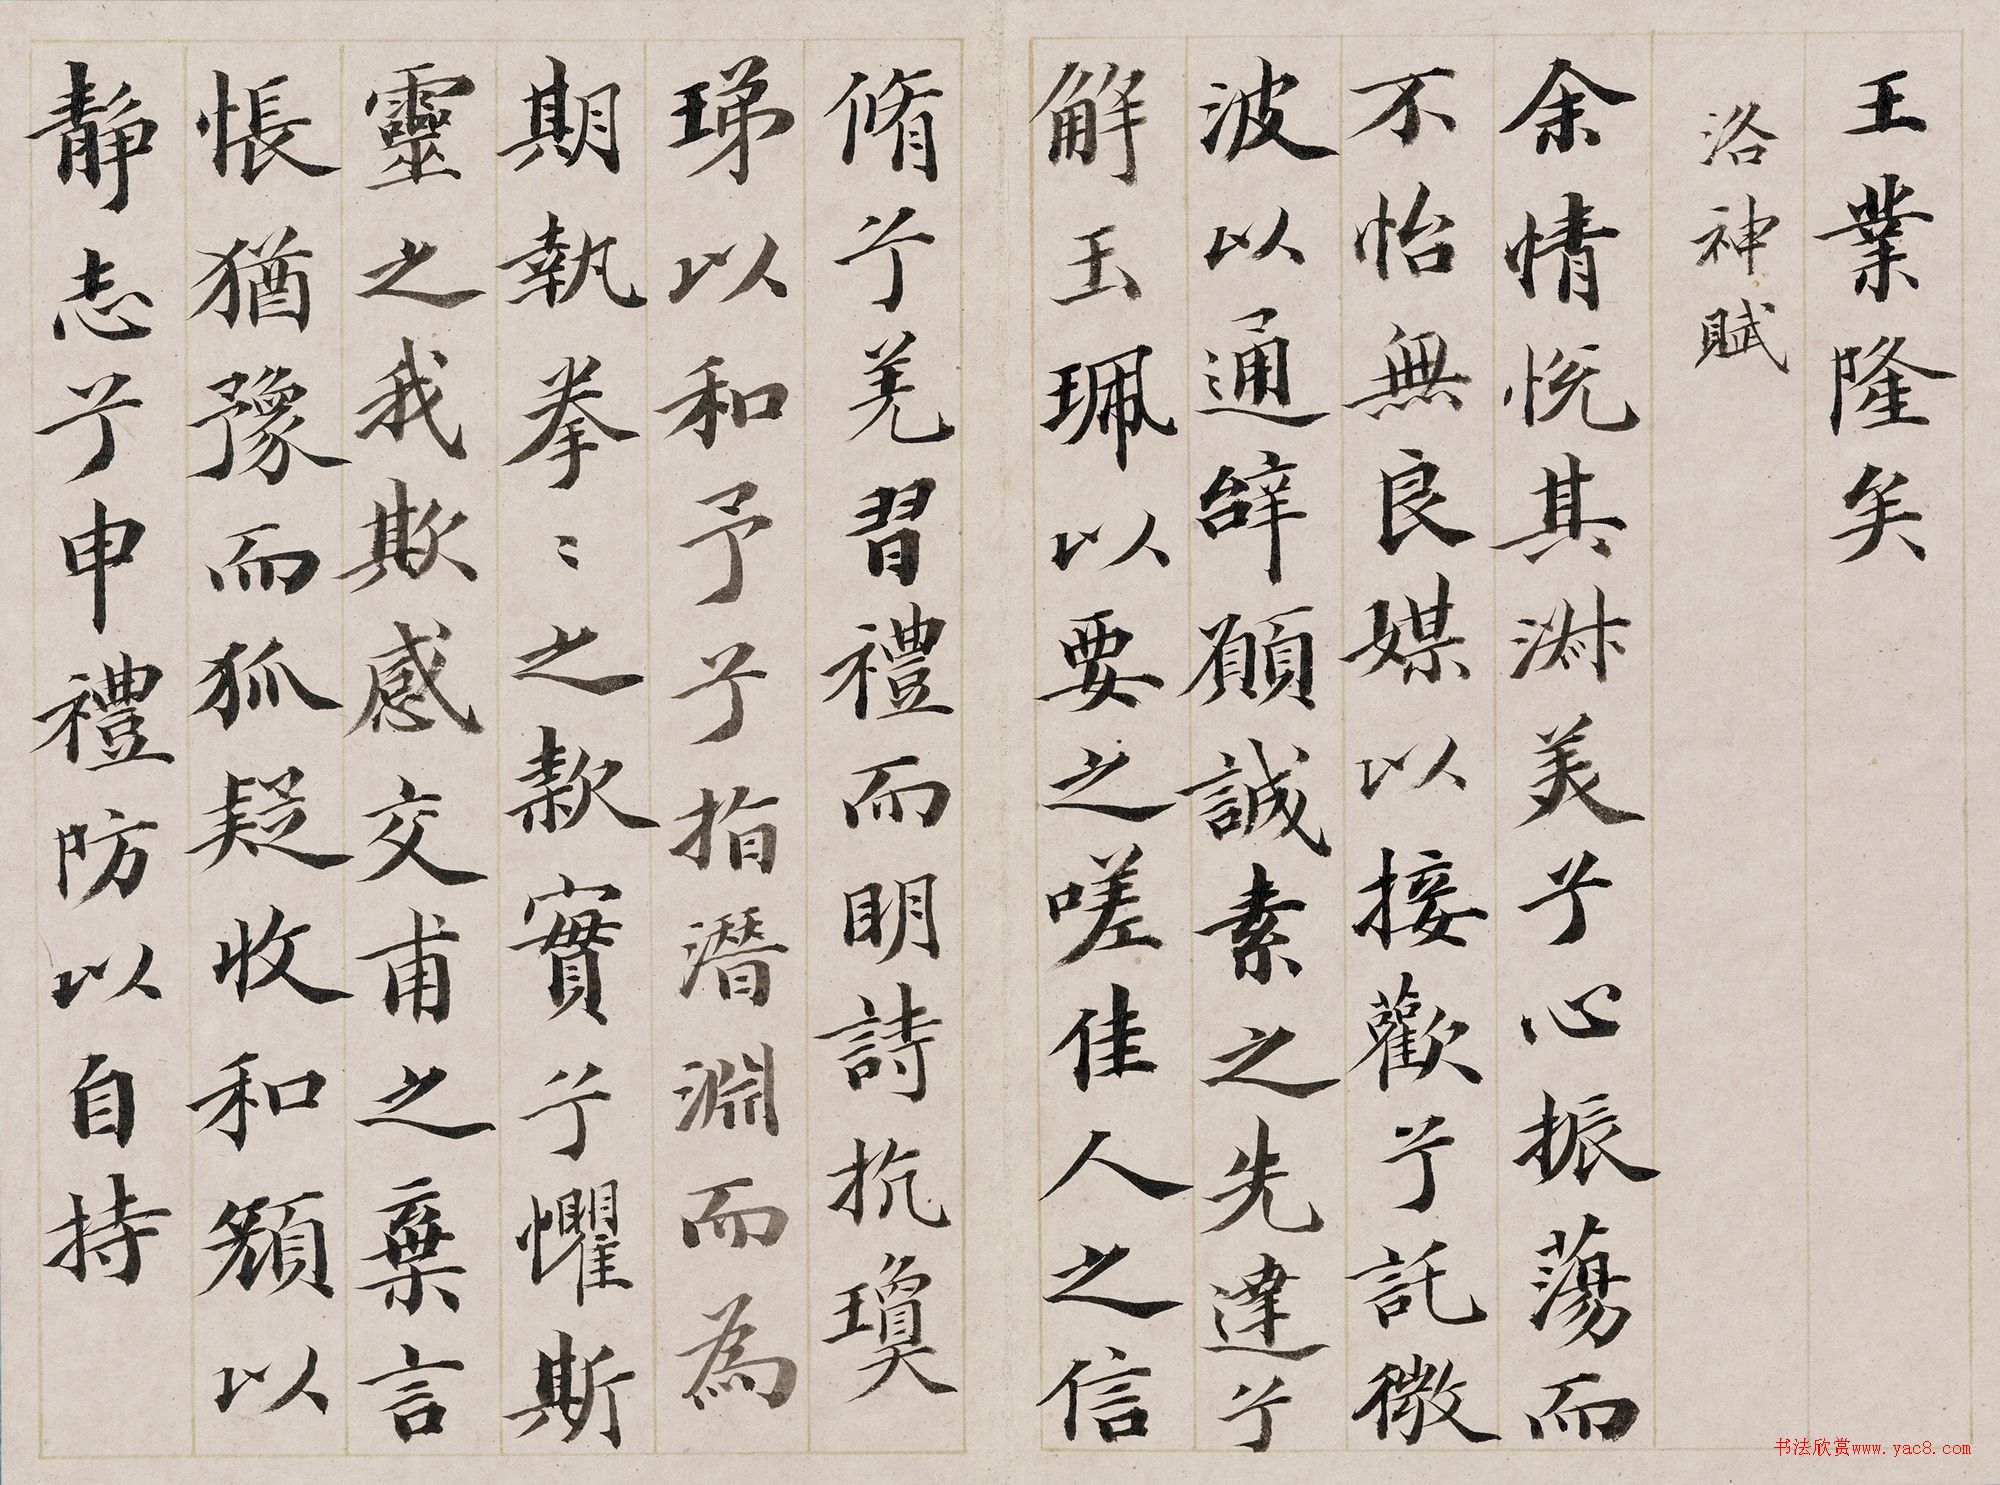 王業隆矣
洛神賦
余情悅其淑美兮心振蕩而
不怡無良媒以接歡兮託微
波以通辭願誠素之先達兮
解玉珮以要之嗟佳人之信
脩兮羌習禮而明詩抗瓊
珶以和予兮指潛淵而為
期執拳〻之款實兮懼斯
靈之我欺感交甫之棄言
悵猶豫而狐疑收和顏以
靜志兮申禮防以自持
书法欣赏www.yac8.com